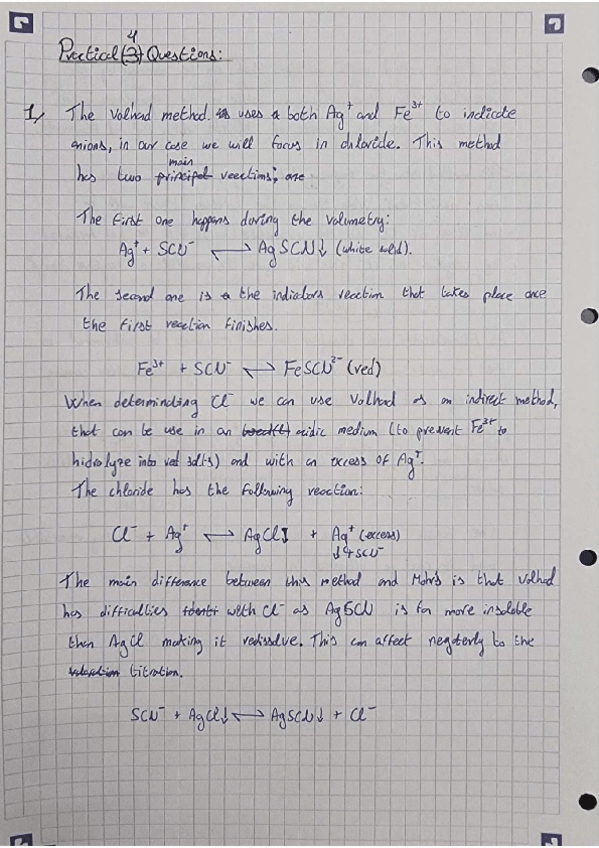 4
Practical (3) Questions:
1, The Volhad method is uses a both Ag⁺ and Fe³⁺ to indicate
anions, in our case we will focus in chloride. This method
main
has two principal reactions; one
The first one happens during the volumetry:
Ag⁺ + SCN⁻ ⟷ AgSCN↓ (white solid).
The second one is a the indicators reaction that takes place once
the first reaction finishes.
Fe³⁺ + SCN⁻ ⟷ FeSCN²⁻ (red)
When determinating Cl⁻ we can use Volhad as an indirect method,
that can be use in an acidic medium (to prevent Fe³⁺ to
hidrolyze into red salts) and with an excess of Ag⁺.
The chloride has the following reaction:
Cl⁻ + Ag⁺ ⟷ AgCl↓ + Ag⁺ (excess)
↓ + SCN⁻
The main difference between this method and Mohrs is that Volhad
has difficulties with Cl⁻ as AgSCN is far more insoluble
than AgCl making it redissolve. This can affect negaterly to the
titration.
SCN⁻ + AgCl↓ ⟷ AgSCN↓ + Cl⁻